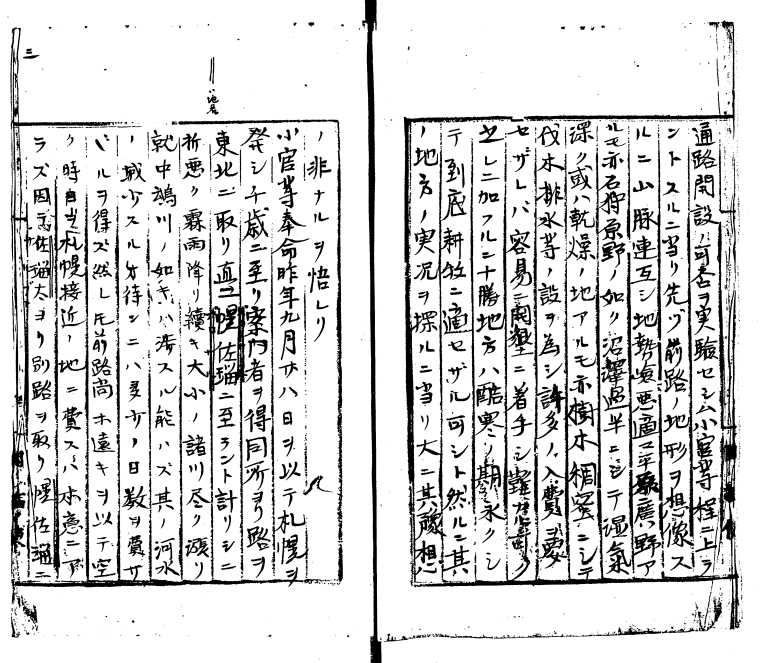 通路開設ノ可否ヲ実験セシム小官等程ニ上ラ
ントスルニ当リ先ヅ前路ノ地形ヲ想像ス
ルニ山脈連互シ地勢嶮悪適マ平原広野ア
ルモ亦石狩原野ノ如ク沼沢過半ニシテ湿気
深ク或ハ乾燥ノ地アルモ亦樹木稠密ニシテ
伐木排水等ノ設ヲ為シ許多ノ入費ヲ要
セザレバ容易ニ開墾ニ着手シ
之レニ加フルニ十勝地方ハ酷寒ノ期永クシ
テ到底耕牧ニ適セザル可シト然ルニ其
ノ地方ノ実況ヲ探ルニ当リ大ニ其ノ予想
ノ非ナルヲ悟レリ
小官等奉命昨年九月廿八日ヲ以テ札幌ヲ
発シ千歳ニ至リ案内者ヲ得同所ヨリ路ヲ
東北ニ取リ直ニ幌佐瑠ニ至ラント計リシニ
折悪ク霖雨降リ続キ大小ノ諸川尽ク漲リ
就中鵡川ノ如キハ渉スル能ハズ其ノ河水
ノ減少スルヲ待ンニハ多少ノ日数ヲ費サ
バルヲ得ズ然レ𪜈前路尚ホ遠キヲ以テ空
ク時日ヲ札幌接近ノ地ニ費スハ本意ニア
ラズ因テ佐瑠太ヨリ別路ヲ取リ幌佐瑠ニ
三